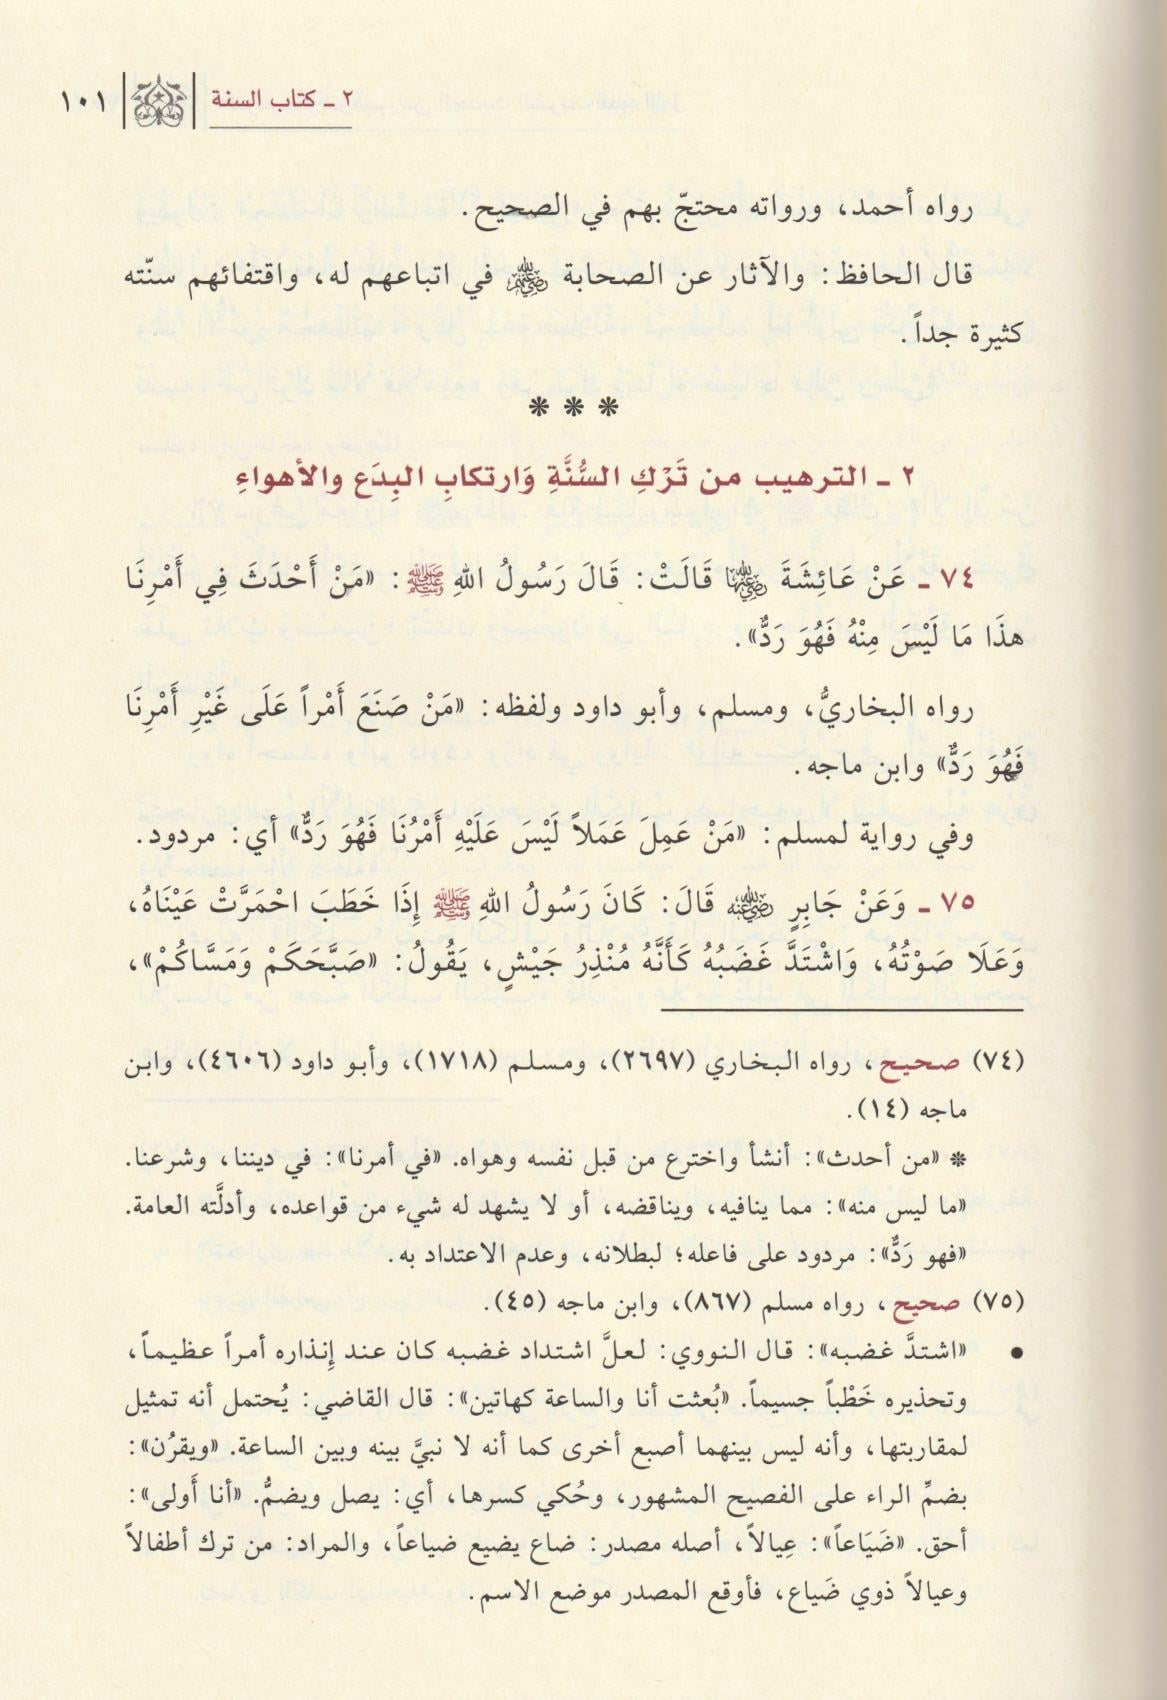 ٢ ـ كتاب السنة ١٠١
رواه أحمد، ورواته محتجّ بهم في الصحيح.
قال الحافظ: والآثار عن الصحابة ﵃ في اتباعهم له، واقتفائهم سنّته
كثيرة جداً.
* * *
٢ ـ الترهيب من تَرْكِ السُّنَّةِ وَارتكابِ البِدَع والأهواءِ
٧٤ ـ عَنْ عَائِشَةَ ﵂ قَالَتْ: قَالَ رَسُولُ اللهِ ﷺ: «مَنْ أَحْدَثَ فِي أَمْرِنَا
هذَا مَا لَيْسَ مِنْهُ فَهُوَ رَدٌّ».
رواه البخاريُّ، ومسلم، وأبو داود ولفظه: «مَنْ صَنَعَ أَمْراً عَلَى غَيْرِ أَمْرِنَا
فَهُوَ رَدٌّ» وابن ماجه.
وفي رواية لمسلم: «مَنْ عَمِلَ عَمَلاً لَيْسَ عَلَيْهِ أَمْرُنَا فَهُوَ رَدٌّ» أي: مردود.
٧٥ ـ وَعَنْ جَابِرٍ ﵁ قَالَ: كَانَ رَسُولُ اللهِ ﷺ إِذَا خَطَبَ احْمَرَّتْ عَيْنَاهُ،
وَعَلَا صَوْتُهُ، وَاشْتَدَّ غَضَبُهُ كَأَنَّهُ مُنْذِرُ جَيْشٍ، يَقُولُ: «صَبَّحَكَمْ وَمَسَّاكُمْ»،
(٧٤) صحيح، رواه البخاري (٢٦٩٧)، ومسلم (١٧١٨)، وأبو داود (٤٦٠٦)، وابن
ماجه (١٤).
* «من أحدث»: أنشأ واخترع من قبل نفسه وهواه. «في أمرنا»: في ديننا، وشرعنا.
«ما ليس منه»: مما ينافيه، ويناقضه، أو لا يشهد له شيء من قواعده، وأدلَّته العامة.
«فهو رَدٌّ»: مردود على فاعله؛ لبطلانه، وعدم الاعتداد به.
(٧٥) صحيح، رواه مسلم (٨٦٧)، وابن ماجه (٤٥).
● «اشتدَّ غضبه»: قال النووي: لعلَّ اشتداد غضبه كان عند إنذاره أمراً عظيماً،
وتحذيره خَطْباً جسيماً. «بُعثت أنا والساعة كهاتين»: قال القاضي: يُحتمل أنه تمثيل
لمقاربتها، وأنه ليس بينهما أصبع أخرى كما أنه لا نبيَّ بينه وبين الساعة. «ويقرُن»:
بضمِّ الراء على الفصيح المشهور، وحُكي كسرها، أي: يصل ويضمُّ. «أنا أَولى»:
أحق. «ضَيَاعاً»: عِيالاً، أصله مصدر: ضاع يضيع ضياعاً، والمراد: من ترك أطفالاً
وعيالاً ذوي ضَياع، فأوقع المصدر موضع الاسم.